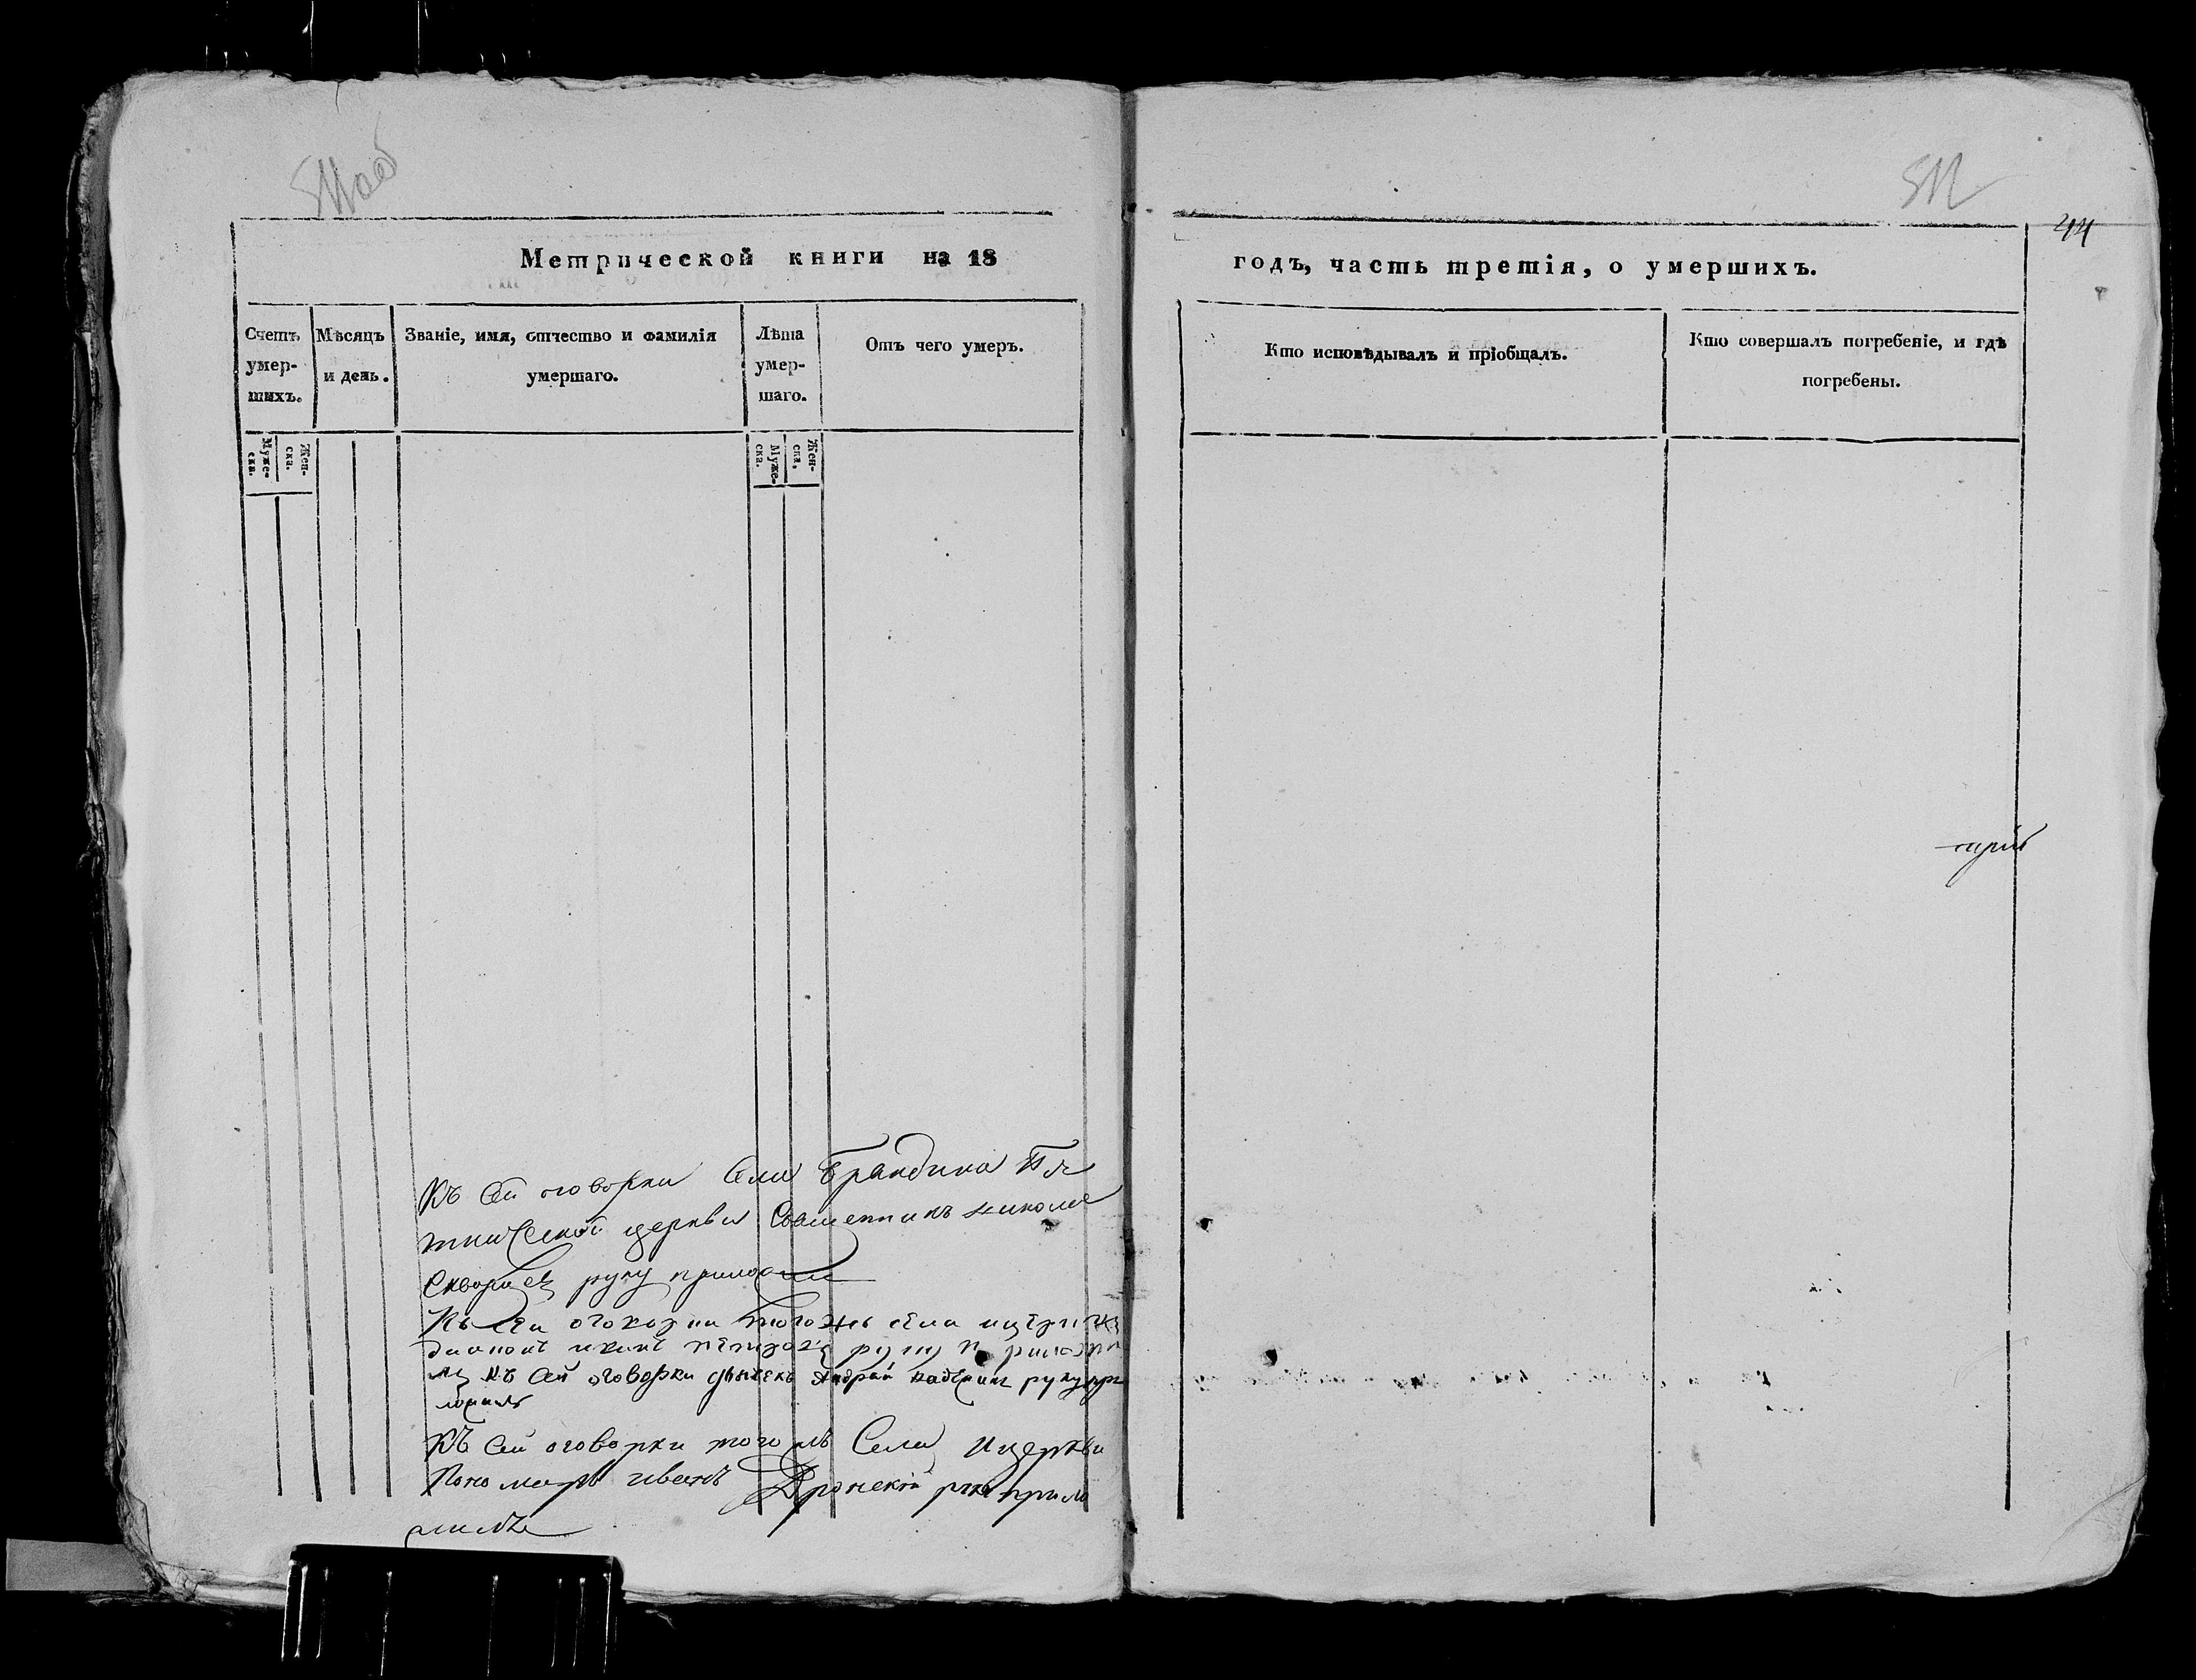 511об
Метрической книги на 18
Счетъ умер-шихъ.
Мѣсяцъ и день.
Званіе, имя, отчество и фамилія умершаго.
Лѣта умер-шаго.
Отъ чего умеръ.
Муже-ска.
Жен-ска.
Муже-ска.
Жен-ска.
Къ сей оговорки села Брандина Пя
тницской церкви Священникъ николай
Скворцев руку приложилъ
Къ сеи оговорки тогожъ села ицеркви
диаконъ руку приложи
лъ Къ сей оговорки дьячекъ Андрей руку при
ложилъ
Къ сей оговорки того жъ Села ицеркви
Пономарь иванъ руку прило
жилъ
512
44
годъ, часть третія, о умершихъ.
Кто исповѣдывалъ и пріобщалъ.
Кто совершалъ погребеніе, и гдѣ
погребены.